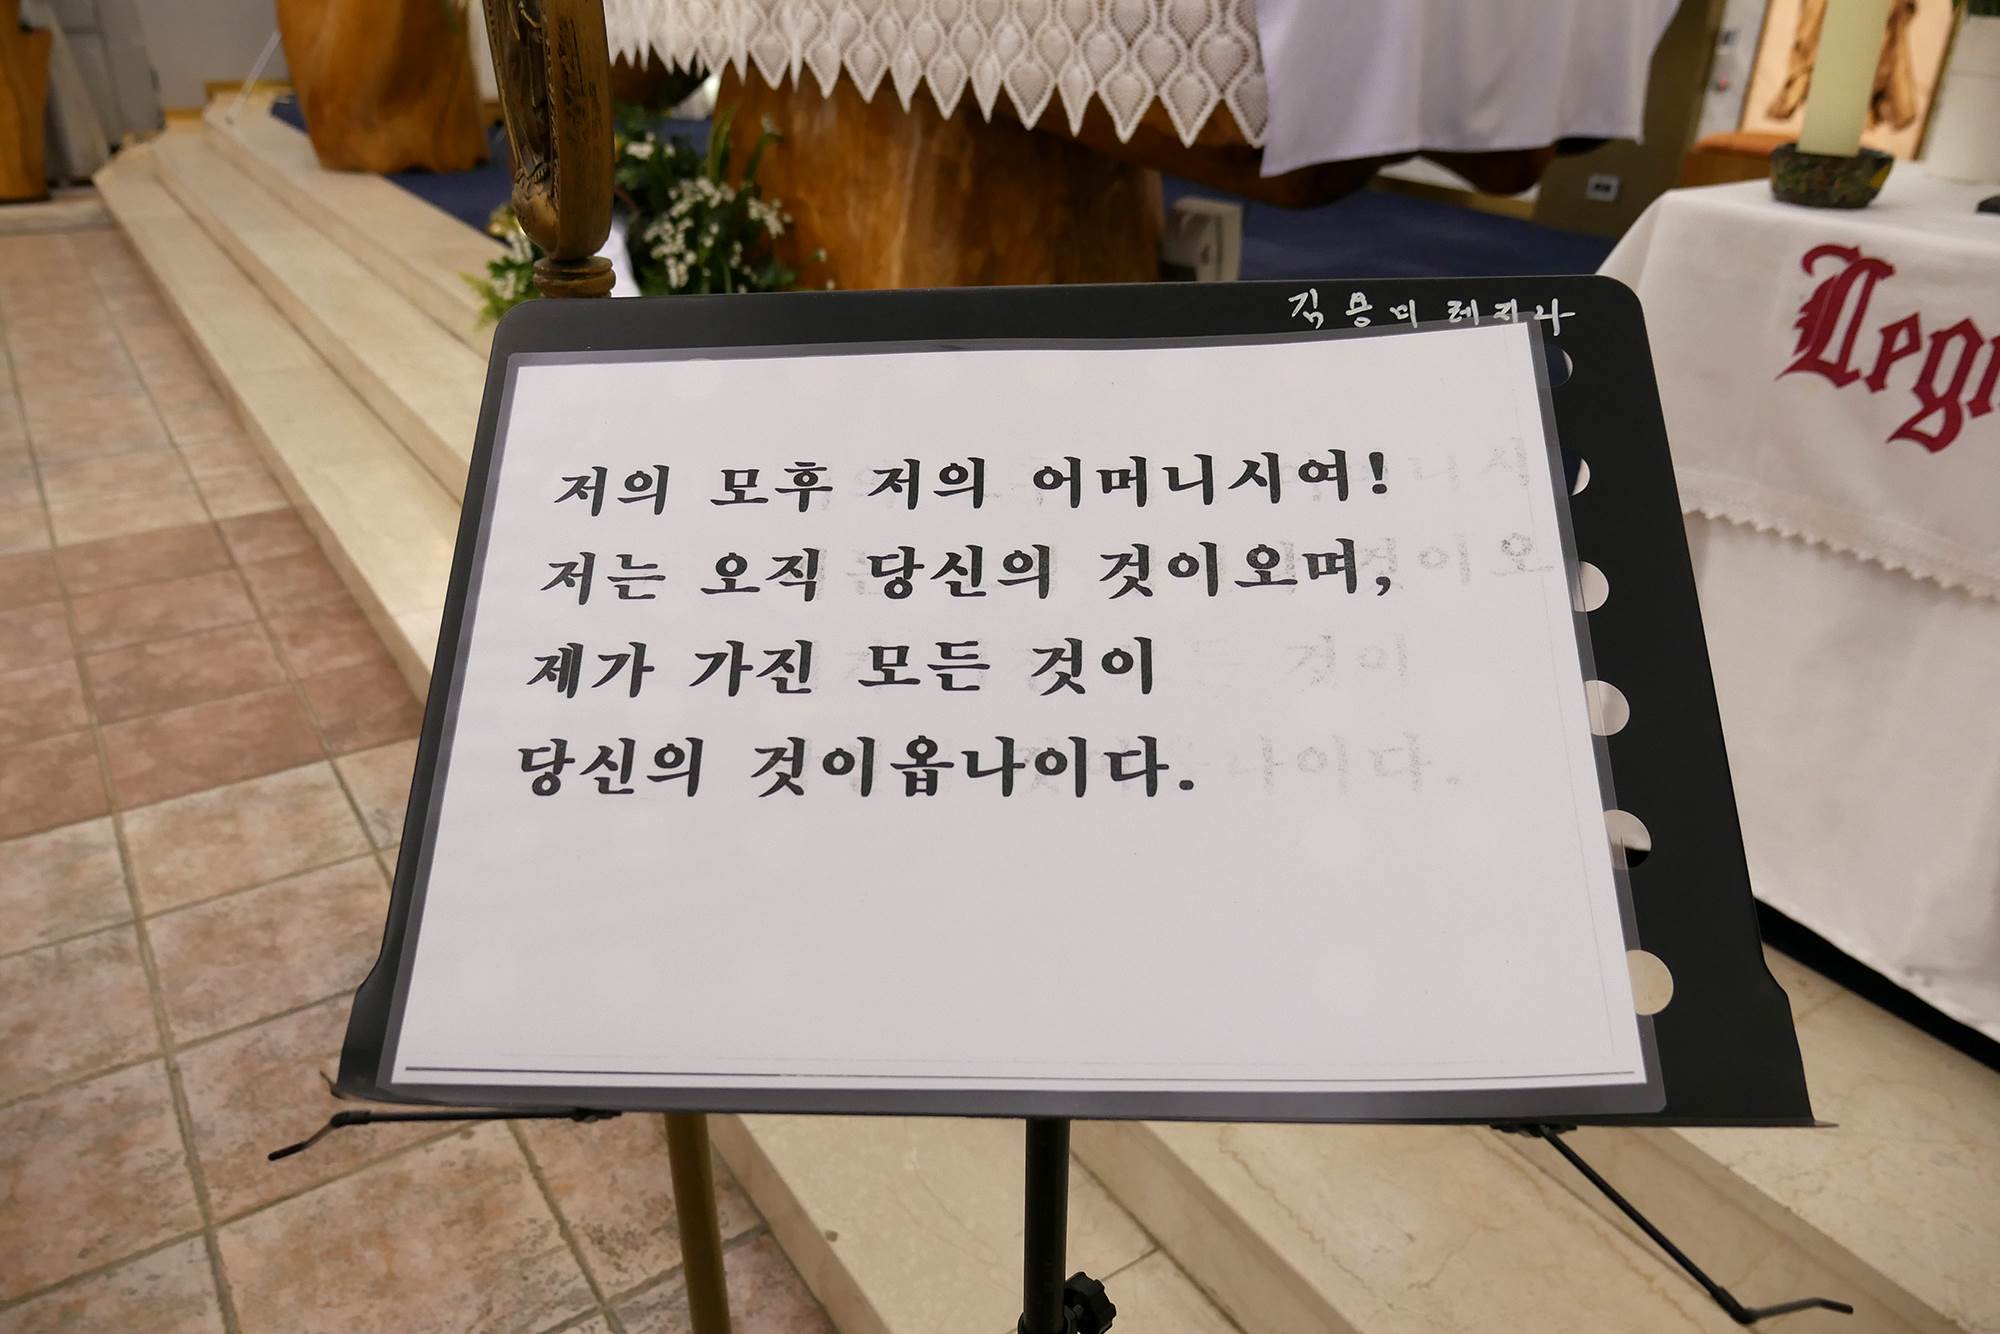 김 용 미 레지나
저의 모후 저의 어머니시여!
저는 오직 당신의 것이오며,
제가 가진 모든 것이
당신의 것이옵나이다.
Legi